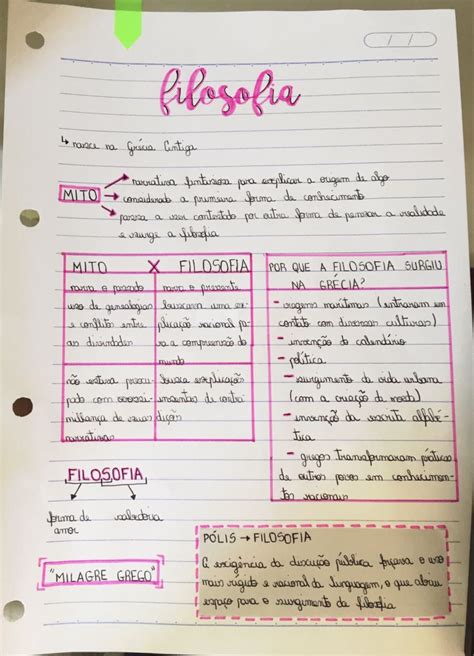 filosofia
↳ nasce na Grécia Antiga
MITO
→ narrativa fantasiosa para explicar a origem de algo
→ considerado a primeira forma de conhecimento
→ passa a ser contestado por outra forma de pensar a realidade
e surge a filosofia
MITO X FILOSOFIA
narra o passado
narra o presente
uso de genealogias
e conflitos entre
as divindades
buscava uma ex-
plicação racional pa-
ra a compreensão do
mundo
não estava preocu-
pado com
de suas
narrativas
busca explicação
de contra-
dições
POR QUE A FILOSOFIA SURGIU
NA GRÉCIA?
- viagens marítimas (entraram em
contato com diversas culturas)
- invenção do calendário
- política
- surgimento da vida urbana
(com a criação da moeda)
- invenção da escrita alfabé-
tica
- gregos transformaram práticas
de outros povos em conhecimen-
tos racionais
FILOSOFIA
forma de
amor
sabedoria
"MILAGRE GREGO"
PÓLIS → FILOSOFIA
A exigência da discução pública forçava o uso
mais rígido e racional da linguagem, o que abriu
espaço para o surgimento da filosofia